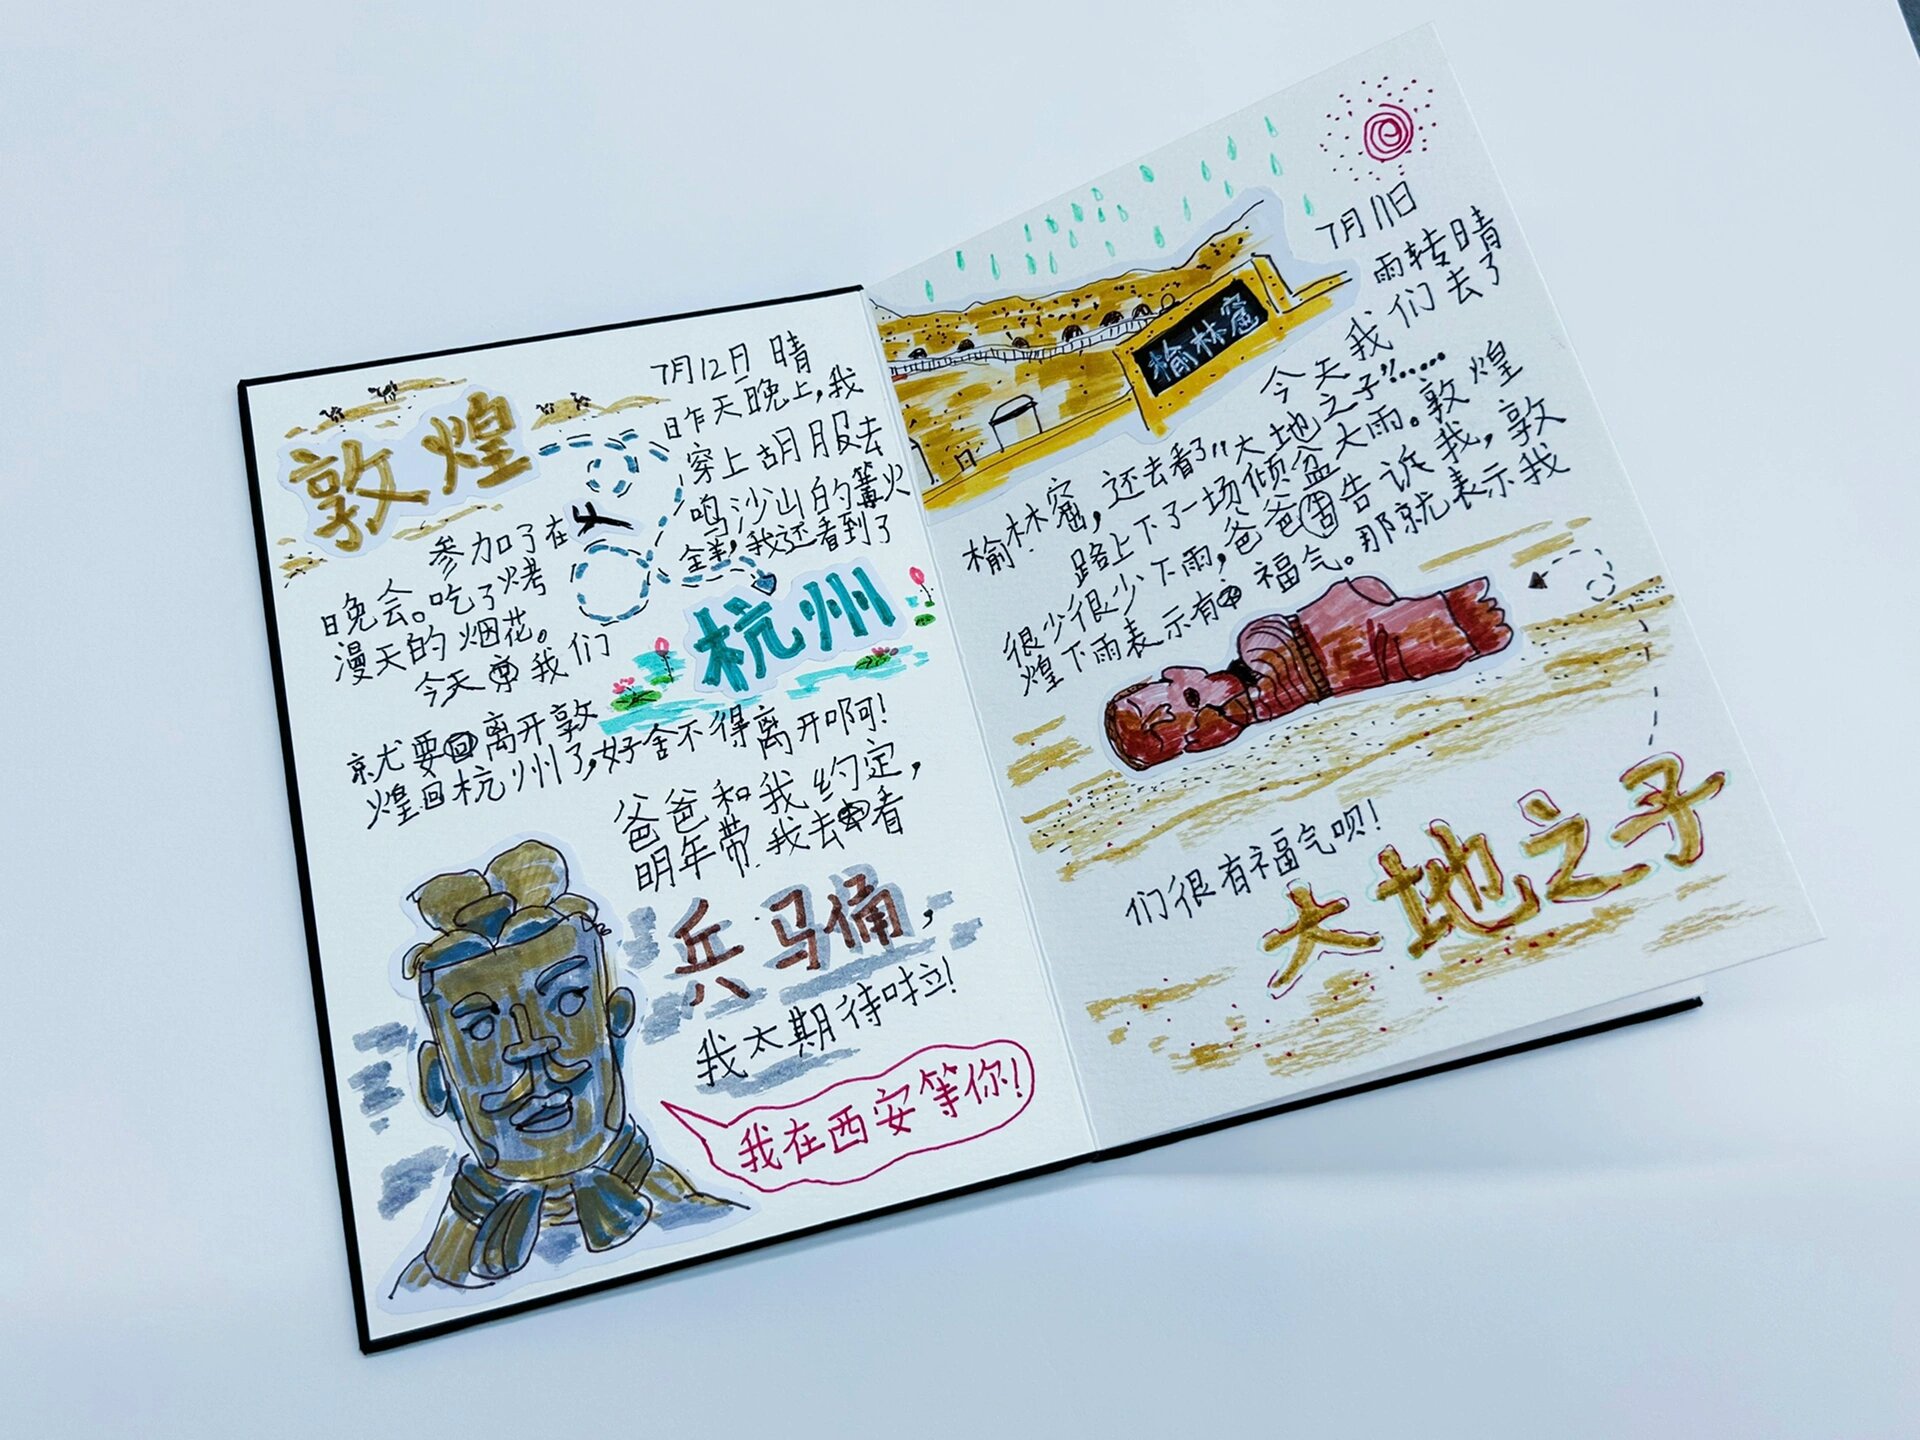 敦煌
7月12日 晴
昨天晚上,我
穿上胡服去
鸣沙山的篝火
参加了在
全羊,我还看到了
晚会。吃了烤
漫天的烟花。
杭州
今天我们
就要离开敦
煌回杭州了,好舍不得离开啊!
爸爸和我约定,
明年带我去看
兵马俑,
我太期待啦!
我在西安等你!
7月11日
雨转晴
榆林窟
今天我们去了
榆林窟,还去看了“大地之子”……
路上下了一场倾盆大雨。敦煌
很少很少下雨,爸爸告诉我,敦
煌下雨表示有福气。那就表示我
们很有福气呗!
大地之子